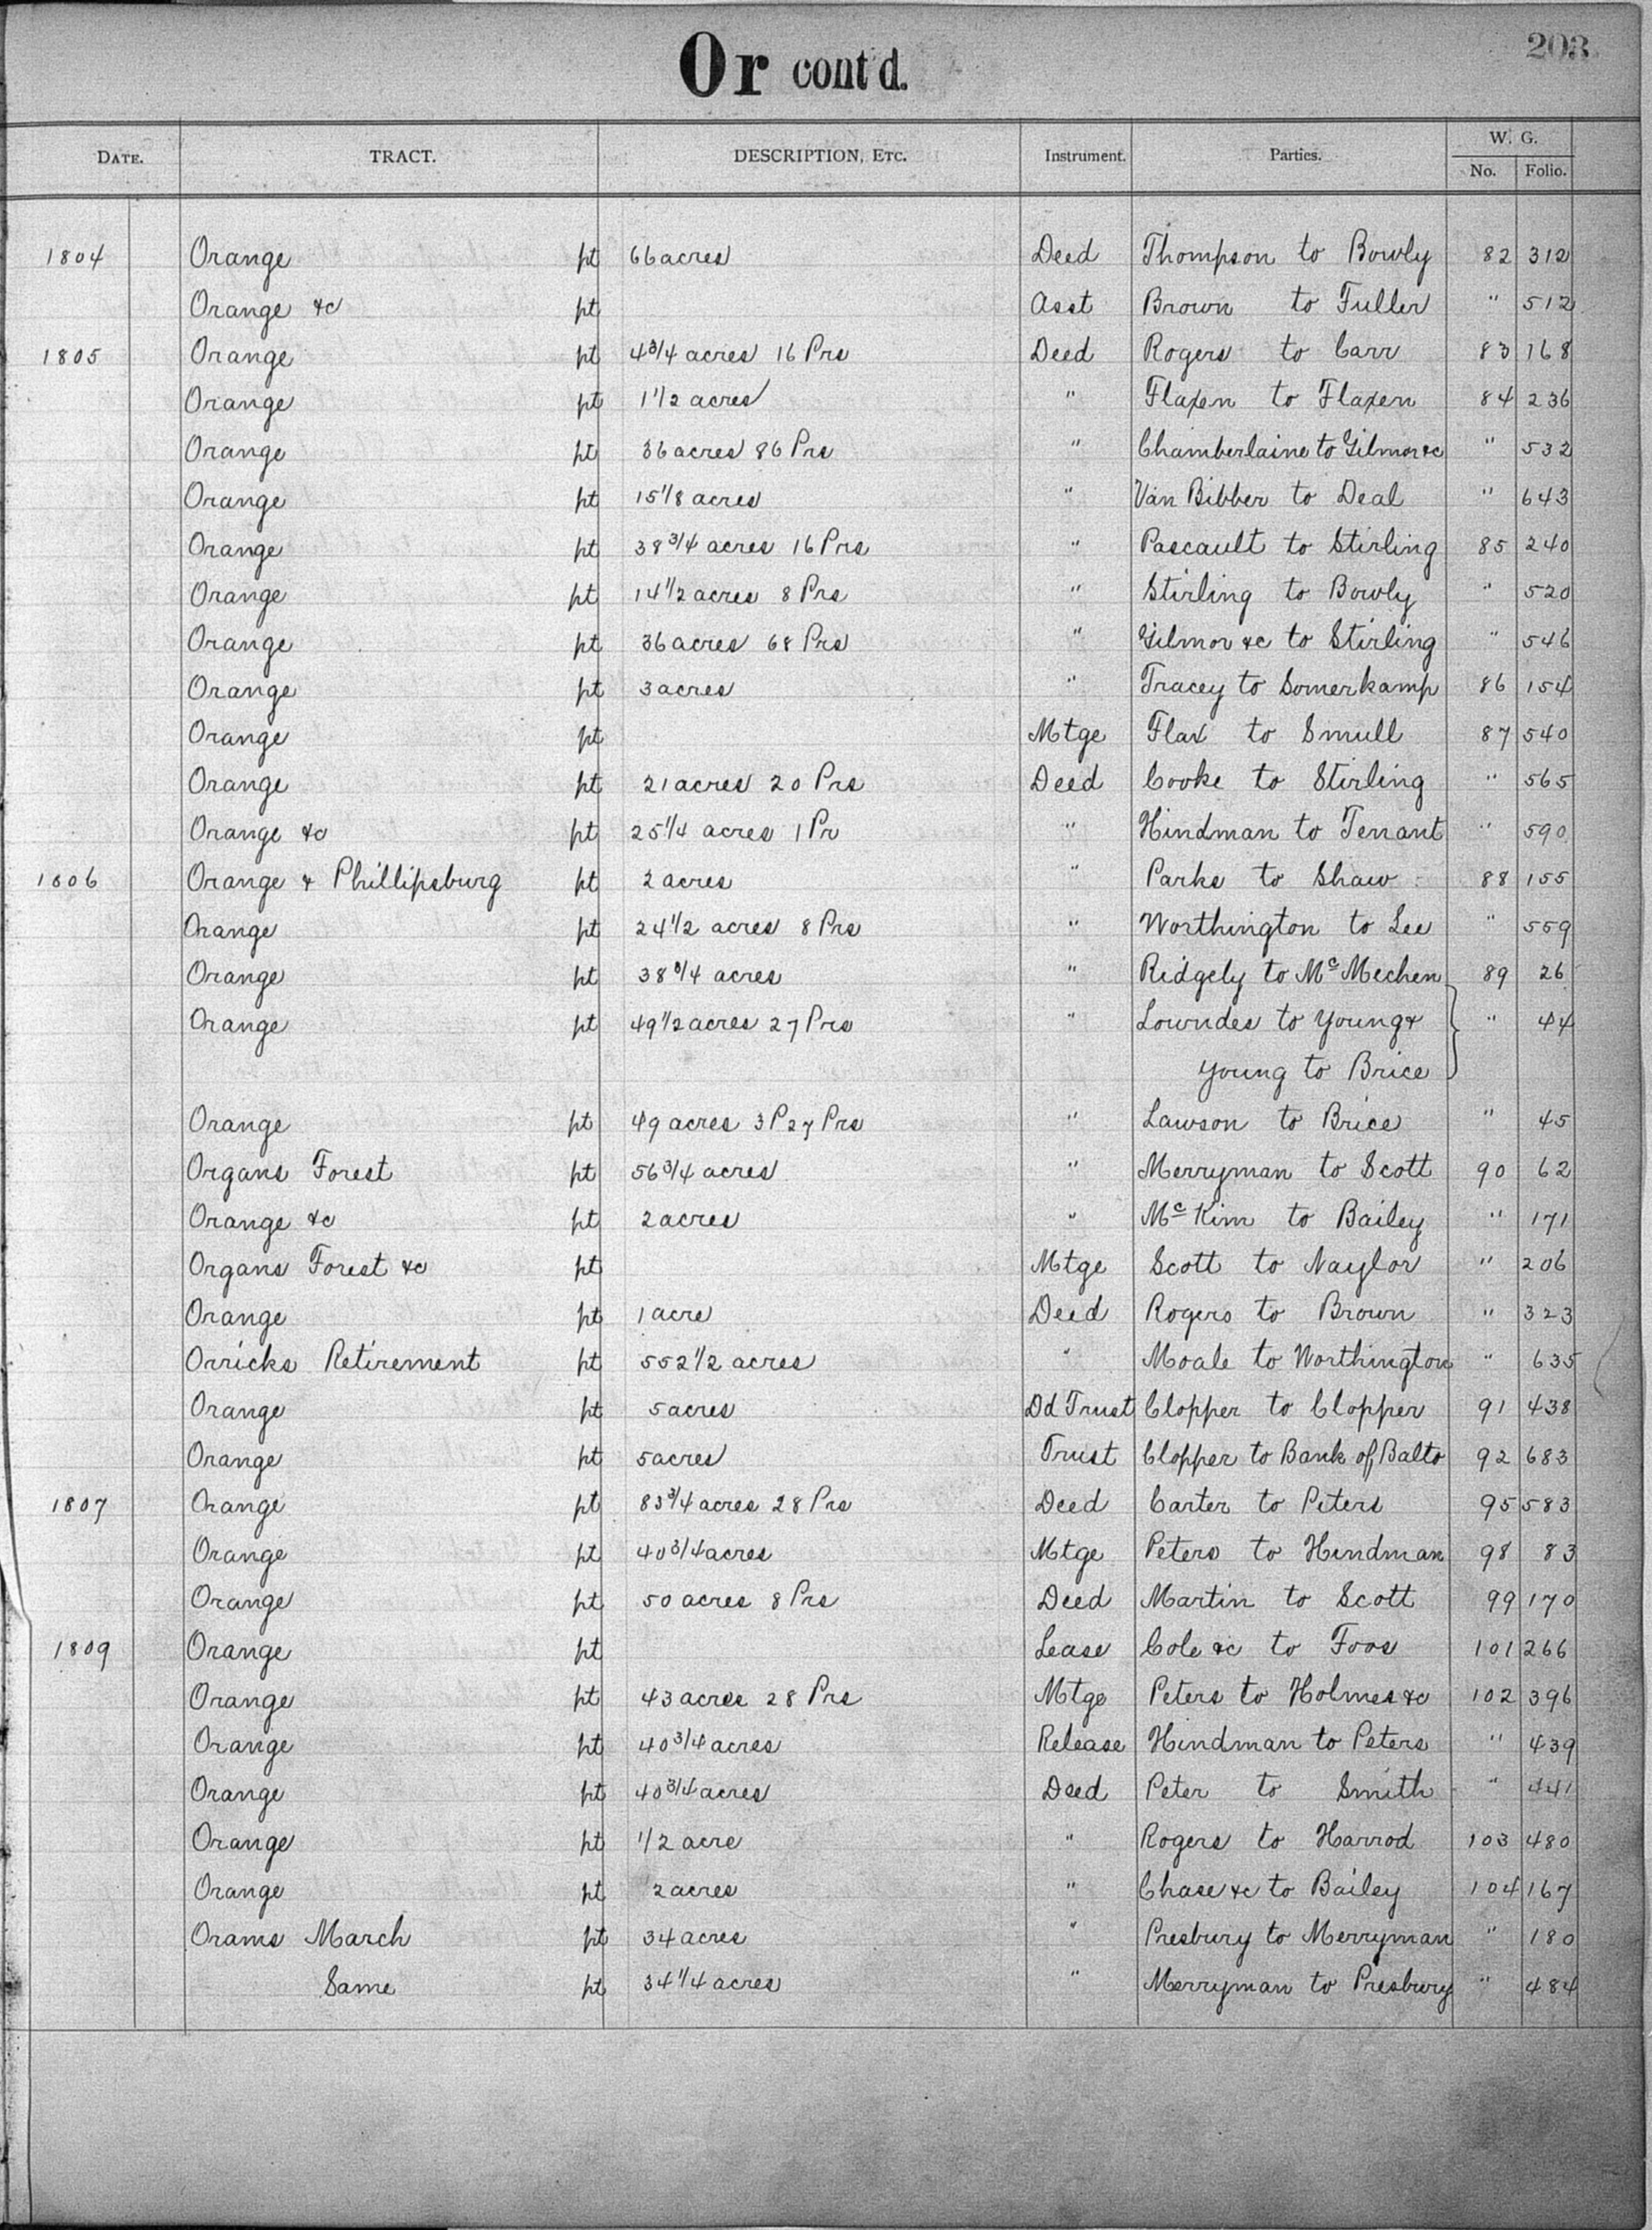 203
Or cont'd.
DATE. TRACT. DESCRIPTION, ETC. Instrument. Parties. W. G.
No. Folio.
1804 Orange pt 66 acres Deed Thompson to Bowly 82 312
Orange &c pt Asst Brown to Fuller " 512
1805 Orange pt 4 3/4 acres 16 Prs Deed Rogers to Carr 83 168
Orange pt 1 1/2 acres " Flaxen to Flaxen 84 236
Orange pt 36 acres 86 Prs " Chamberlaine to Gilmor &c " 532
Orange pt 15 1/8 acres " Van Bibber to Deal " 643
Orange pt 38 3/4 acres 16 Prs " Pascault to Stirling 85 240
Orange pt 14 1/2 acres 8 Prs " Stirling to Bowly " 520
Orange pt 36 acres 68 Prs " Gilmor &c to Stirling " 546
Orange pt 3 acres " Tracey to Somerkamp 86 154
Orange pt Mtge Flax to Smull 87 540
Orange pt 21 acres 20 Prs Deed Cooke to Stirling " 565
Orange &c pt 25 1/4 acres 1 Pr " Hindman to Tenant " 590
1806 Orange & Phillipsburg pt 2 acres " Parks to Shaw 88 155
Orange pt 24 1/2 acres 8 Prs " Worthington to Lee " 559
Orange pt 38 3/4 acres " Ridgely to McMechen 89 26
Orange pt 49 1/2 acres 27 Prs " Lowndes to Young & " 44
Young to Brice
Orange pt 49 acres 3 P 27 Prs " Lawson to Brice " 45
Organs Forest pt 56 3/4 acres " Merryman to Scott 90 62
Orange &c pt 2 acres " McKim to Bailey " 171
Organs Forest &c pt Mtge Scott to Naylor " 206
Orange pt 1 acre Deed Rogers to Brown " 323
Orricks Retirement pt 552 1/2 acres " Moale to Worthington " 635
Orange pt 5 acres Dd Trust Clopper to Clopper 91 438
Orange pt 5 acres Trust Clopper to Bank of Balto 92 683
1807 Orange pt 83 3/4 acres 28 Prs Deed Carter to Peters 95 583
Orange pt 40 3/4 acres Mtge Peters to Hindman 98 83
Orange pt 50 acres 8 Prs Deed Martin to Scott 99 170
1809 Orange pt Lease Cole &c to Foos 101 266
Orange pt 43 acres 28 Prs Mtge Peters to Holmes &c 102 396
Orange pt 40 3/4 acres Release Hindman to Peters " 439
Orange pt 40 3/4 acres Deed Peter to Smith " 441
Orange pt 1/2 acre " Rogers to Harrod 103 480
Orange pt 2 acres " Chase &c to Bailey 104 167
Orams March pt 34 acres " Presbury to Merryman " 180
Same pt 34 1/4 acres " Merryman to Presbury " 484